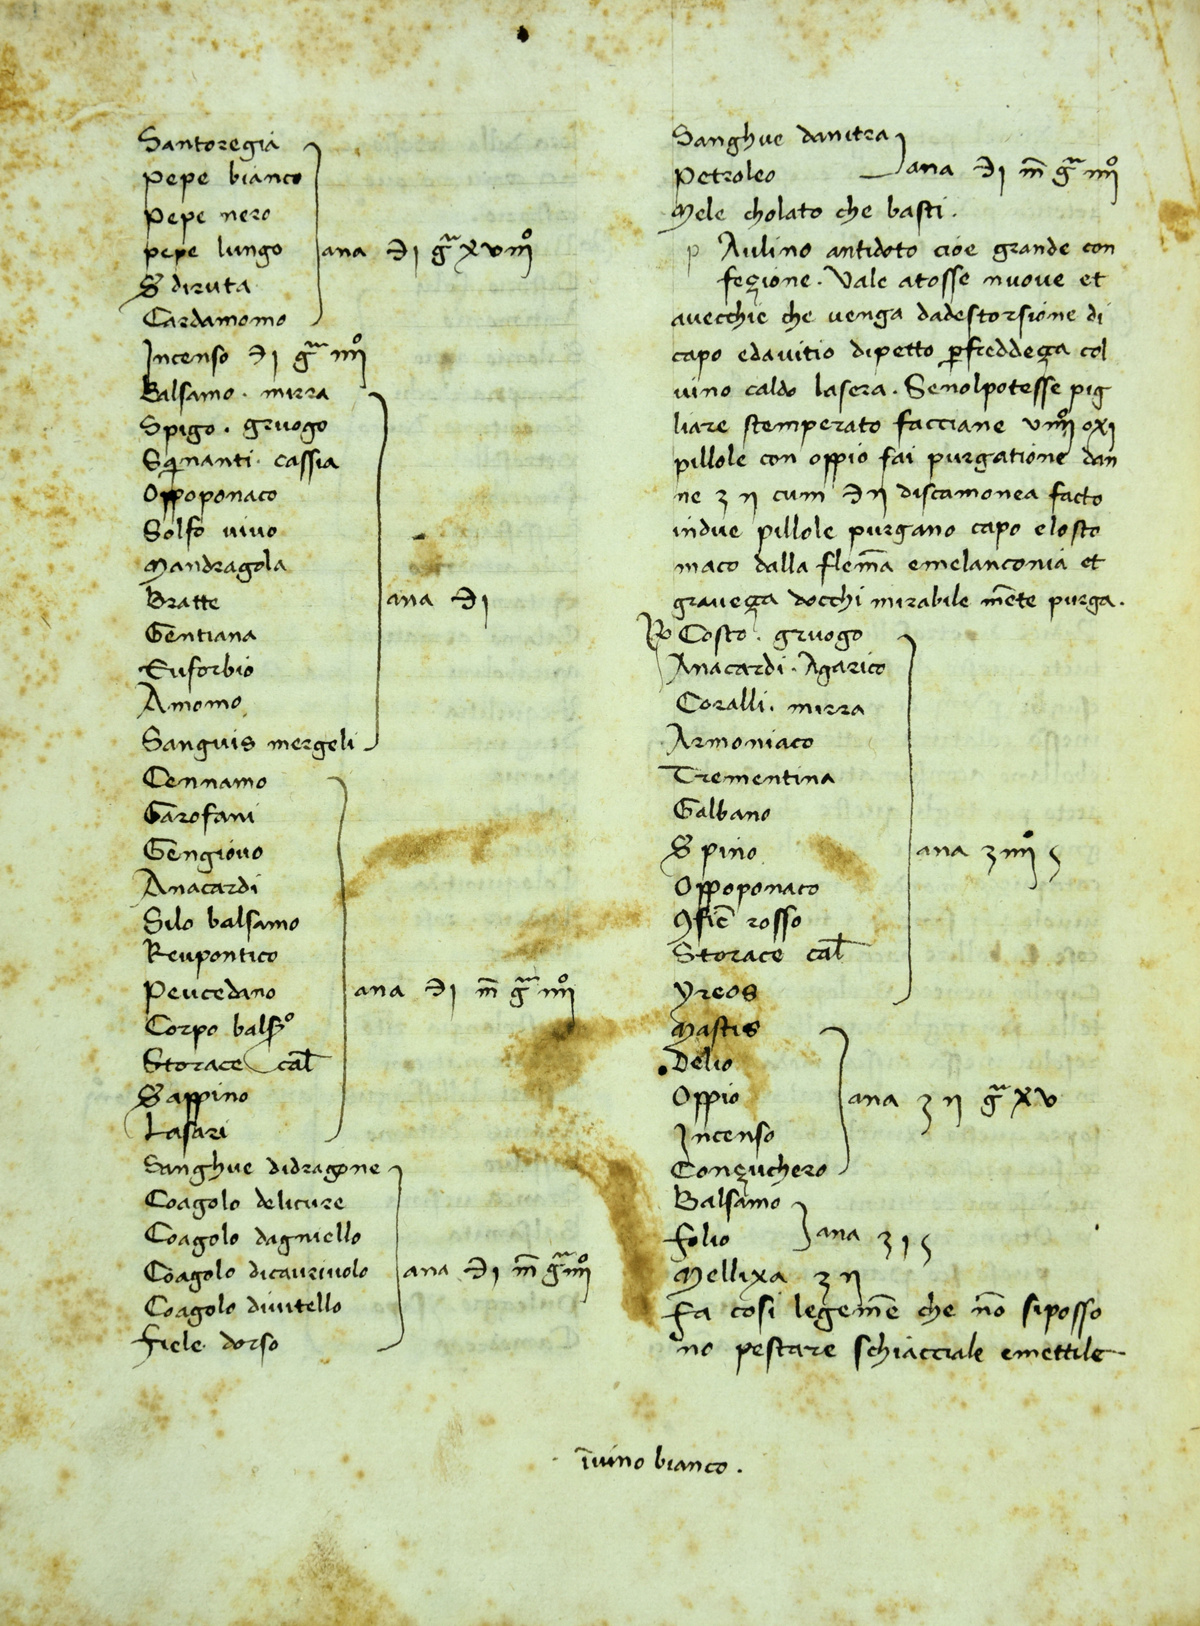 Santoregia
Pepe bianco
Pepe nero
pepe lungo ana ℈ı g̃ᵃ xvıııjº
S diruta
Cardamomo
Incenso ℈ı g̃ᵃ ıııjº
Balsamo . mirra
Spigo . gruogo
Sqnanti . cassia
Oppoponaco
Solfo vivo
Mandragola
Bratte ana ℈ı
Gentiana
Euforbio
Amomo
Sanguis mergeli
Cennamo
Garofani
Gengiovo
Anacardi
Silo balsamo
Reupontico
Peucedano ana ℈ı m̃ g̃ᵃ ıııjº
Corpo balsº
Storace cal̃
Sappino
Lasari
Sanghue didragone
Coagolo delievre
Coagolo dagniello
Coagolo dicavriuolo ana ℈ı m̃ g̃ᵃ ıııjº
Coagolo divitello
Fiele dorso
Sanghue danitra
Petroleo ana ℈ı m̃ g̃ᵃ ıııjº
Mele cholato che basti .
p Aulino antidoto cioe grande con
feçione . Vale atosse nuove et
avecchie che venga dadestorsione di
capo edavitio dipetto ꝑfreddeça col
vino caldo lasera . Senolpotesse pig
liare stemperato facciane vıııjº oxı
pillole con oppio fai purgatione dan
ne ʒ ıȷ cum ℈ıȷ discamonea facto
indue pillole purgano capo elosto
maco dalla flem̃a emelanconia et
graueça docchi mirabile m̃ete purga .
Rº Costo . gruogo
Anacardi . Agarico
Coralli . mirra
Armoniaco
Trementina
Galbano
S pino ana ʒ ıııjº ſ
Oppoponaco
ꝯfic̃ rosso
Storace cal̃
Yreos
Mastis
Delio
Oppio ana ʒ ıȷ g̃ᵃ xv
Incenso
Conçuchero
Balsamo
folio ana ʒ ı ſ
Mellixa ʒ ıȷ
Fa cosi legem̃e che nõ siposso
no pestare schiacciale emettile
ĩvino bianco .